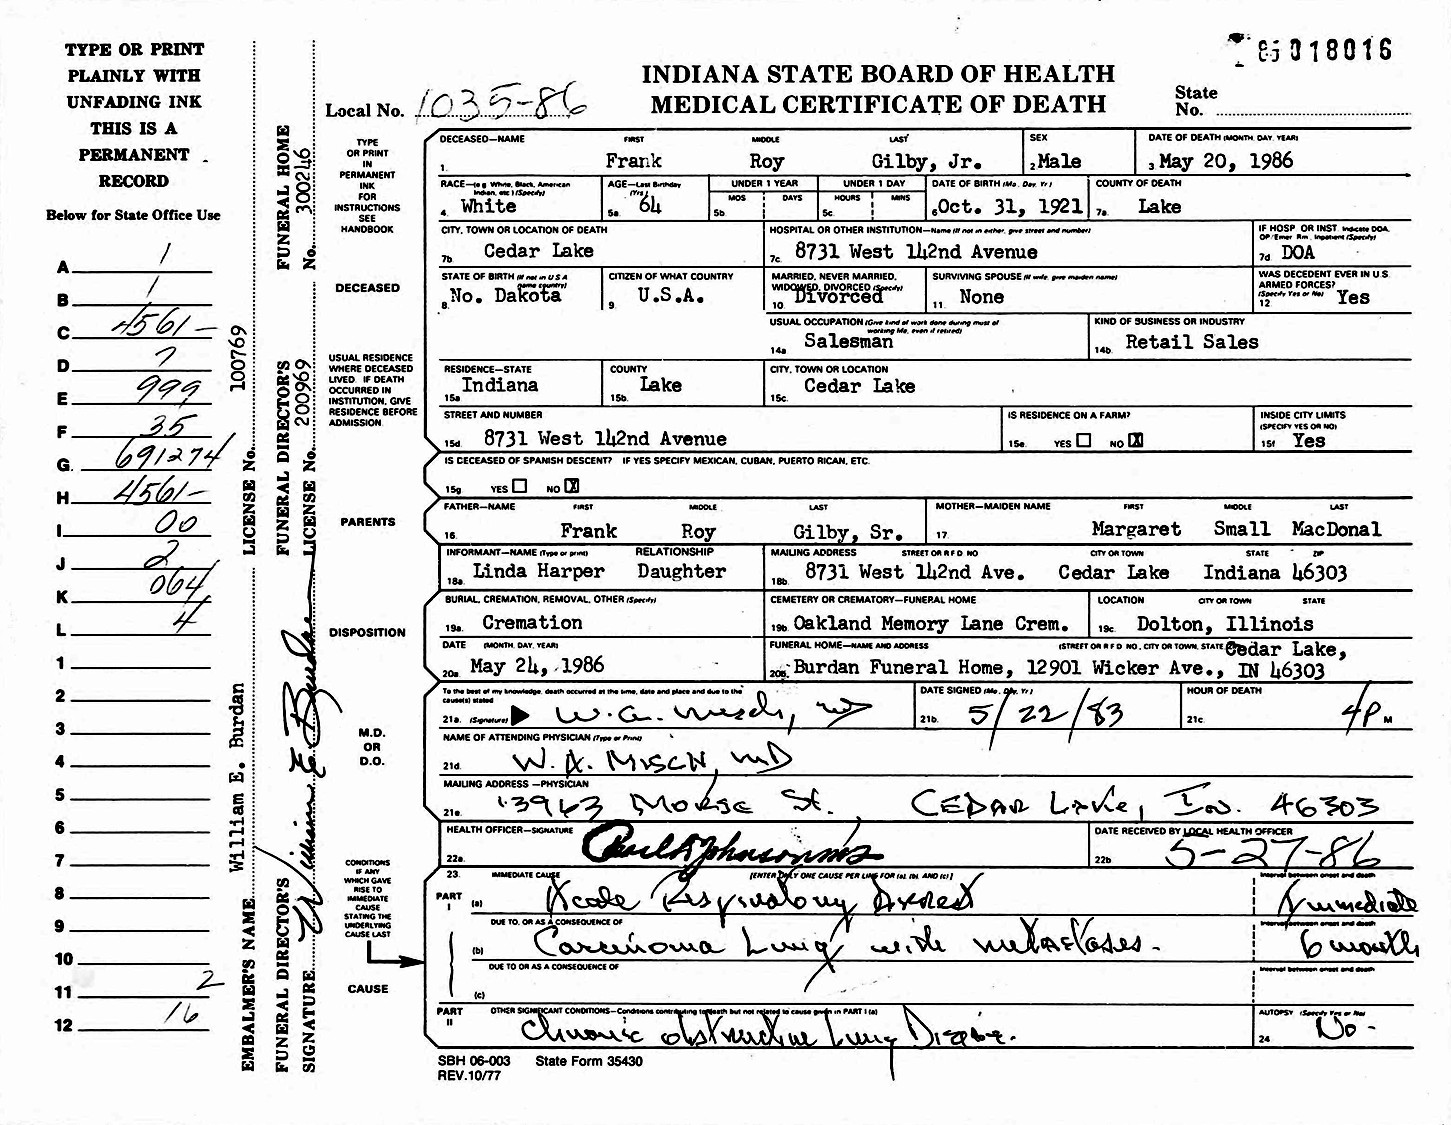 TYPE OR PRINT
PLAINLY WITH
UNFADING INK
THIS IS A
PERMANENT
RECORD
Below for State Office Use
A 1
B 1
C 4561-
D 7
E 999
F 35
G. 691274
H 4561-
I 00
J 2
K 064
L 4
1
2
3
4
5
6
7
8
9
10
11 2
12 16
EMBALMER'S NAME William E. Burdan LICENSE No. 100769
FUNERAL DIRECTOR'S SIGNATURE William E. Burdan
FUNERAL DIRECTOR'S LICENSE No. 200969
FUNERAL HOME No. 300246
86 018016
INDIANA STATE BOARD OF HEALTH
MEDICAL CERTIFICATE OF DEATH
State
No.
Local No. 1035-86
TYPE
OR PRINT
IN
PERMANENT
INK
FOR
INSTRUCTIONS
SEE
HANDBOOK
DECEASED
USUAL RESIDENCE
WHERE DECEASED
LIVED. IF DEATH
OCCURRED IN
INSTITUTION, GIVE
RESIDENCE BEFORE
ADMISSION.
PARENTS
DISPOSITION
M.D.
OR
D.O.
CONDITIONS
IF ANY
WHICH GAVE
RISE TO
IMMEDIATE
CAUSE
STATING THE
UNDERLYING
CAUSE LAST
CAUSE
DECEASED—NAME FIRST MIDDLE LAST SEX DATE OF DEATH (MONTH, DAY, YEAR)
1. Frank Roy Gilby, Jr. 2. Male 3. May 20, 1986
RACE—(e.g. White, Black, American Indian, etc.) (Specify) AGE—Last Birthday (Yrs.) UNDER 1 YEAR UNDER 1 DAY DATE OF BIRTH (Mo., Day, Yr.) COUNTY OF DEATH
MOS DAYS HOURS MINS
4. White 5a. 64 5b. 5c. 6. Oct. 31, 1921 7a. Lake
CITY, TOWN OR LOCATION OF DEATH HOSPITAL OR OTHER INSTITUTION—Name (If not in either, give street and number) IF HOSP. OR INST. Indicate DOA, OP/Emer. Rm., Inpatient (Specify)
7b. Cedar Lake 7c. 8731 West 142nd Avenue 7d. DOA
STATE OF BIRTH (If not in U.S.A. name country) CITIZEN OF WHAT COUNTRY MARRIED, NEVER MARRIED, WIDOWED, DIVORCED (Specify) SURVIVING SPOUSE (If wife, give maiden name) WAS DECEDENT EVER IN U.S. ARMED FORCES? (Specify Yes or No)
8. No. Dakota 9. U.S.A. 10. Divorced 11. None 12. Yes
USUAL OCCUPATION (Give kind of work done during most of working life, even if retired) KIND OF BUSINESS OR INDUSTRY
14a. Salesman 14b. Retail Sales
RESIDENCE—STATE COUNTY CITY, TOWN OR LOCATION
15a. Indiana 15b. Lake 15c. Cedar Lake
STREET AND NUMBER IS RESIDENCE ON A FARM? INSIDE CITY LIMITS (SPECIFY YES OR NO)
15d. 8731 West 142nd Avenue 15e. YES NO X 15f. Yes
IS DECEASED OF SPANISH DESCENT? IF YES SPECIFY MEXICAN, CUBAN, PUERTO RICAN, ETC.
15g. YES NO X
FATHER—NAME FIRST MIDDLE LAST MOTHER—MAIDEN NAME FIRST MIDDLE LAST
16. Frank Roy Gilby, Sr. 17. Margaret Small MacDonal
INFORMANT—NAME (Type or print) RELATIONSHIP MAILING ADDRESS STREET OR R.F.D. NO. CITY OR TOWN STATE ZIP
18a. Linda Harper Daughter 18b. 8731 West 142nd Ave. Cedar Lake Indiana 46303
BURIAL, CREMATION, REMOVAL, OTHER (Specify) CEMETERY OR CREMATORY—FUNERAL HOME LOCATION CITY OR TOWN STATE
19a. Cremation 19b. Oakland Memory Lane Crem. 19c. Dolton, Illinois
DATE (MONTH, DAY, YEAR) FUNERAL HOME—NAME AND ADDRESS (STREET OR R.F.D. NO., CITY OR TOWN, STATE Cedar Lake,
20a. May 24, 1986 20b. Burdan Funeral Home, 12901 Wicker Ave., IN 46303
To the best of my knowledge, death occurred at the time, date and place and due to the cause(s) stated DATE SIGNED (Mo., Day, Yr.) HOUR OF DEATH
21a. (Signature) W.A. Misch, MD 21b. 5/22/83 21c. 4P M
NAME OF ATTENDING PHYSICIAN (Type or Print)
21d. W. A. MISCH, MD
MAILING ADDRESS—PHYSICIAN
21e. 13963 MORSE St. CEDAR LAKE, IN. 46303
HEALTH OFFICER—SIGNATURE DATE RECEIVED BY LOCAL HEALTH OFFICER
22a. 22b. 5-27-86
23. IMMEDIATE CAUSE [ENTER ONLY ONE CAUSE PER LINE FOR (a), (b), AND (c)] Interval between onset and death
PART I (a) Acute Respiratory Arrest Immediate
DUE TO, OR AS A CONSEQUENCE OF Interval between onset and death
(b) Carcinoma Lung with metastases. 6 month
DUE TO OR AS A CONSEQUENCE OF Interval between onset and death
(c)
PART II OTHER SIGNIFICANT CONDITIONS—Conditions contributing to death but not related to cause given in PART I (a) AUTOPSY (Specify Yes or No)
Chronic obstructive Lung Disease. 24. No -
SBH 06-003 State Form 35430
REV. 10/77